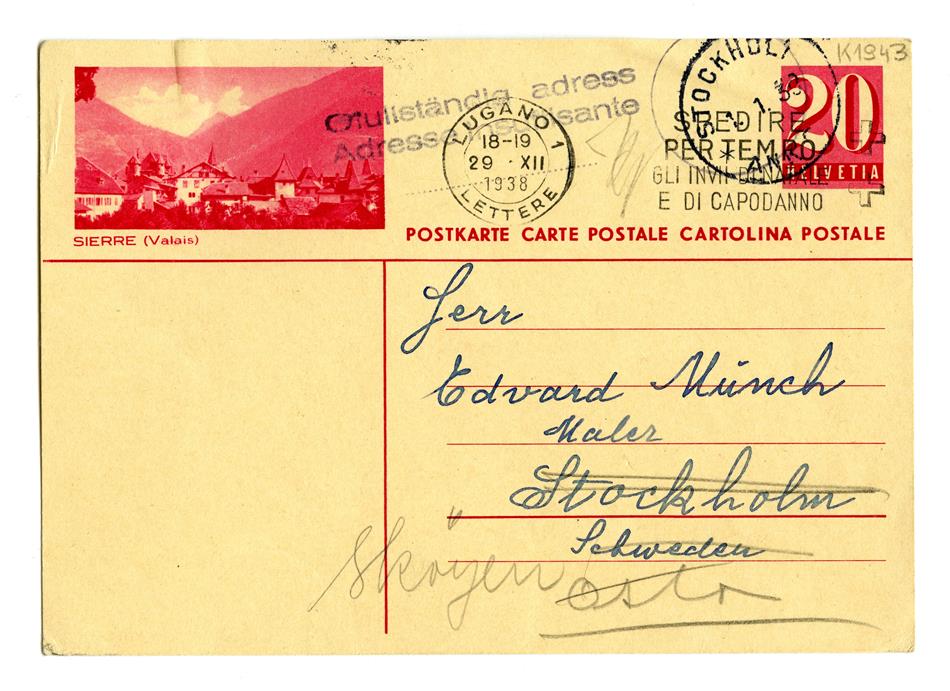 K1943
Ofullständig adress
Adresse insuffisante
LUGANO 1
18-19
29 · XII
1938
LETTERE
STOCKHOLM
1.
ANK
SPEDIRE
PER TEMPO
GLI INVII DI NATALE
E DI CAPODANNO
20
HELVETIA
SIERRE (Valais)
POSTKARTE CARTE POSTALE CARTOLINA POSTALE
Herr
Edvard Münch
Maler
Stockholm
Schweden
Sköyen
Oslo